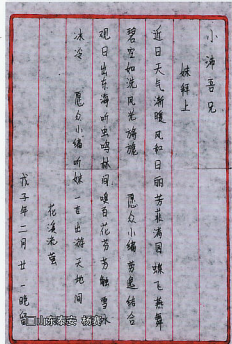 小沛吾兄
妹拜上
近日天气渐暖风和日丽芳菲满园蝶飞燕舞
碧空如洗风光旖旎 愿众小编劳逸结合
观日出东海听虫鸣林间嗅百花芬芳触雪水
冰冷 愿众小编听妹一言出游天地间
花溪流萤
戊子年二月廿一晚
山东泰安 杨爽